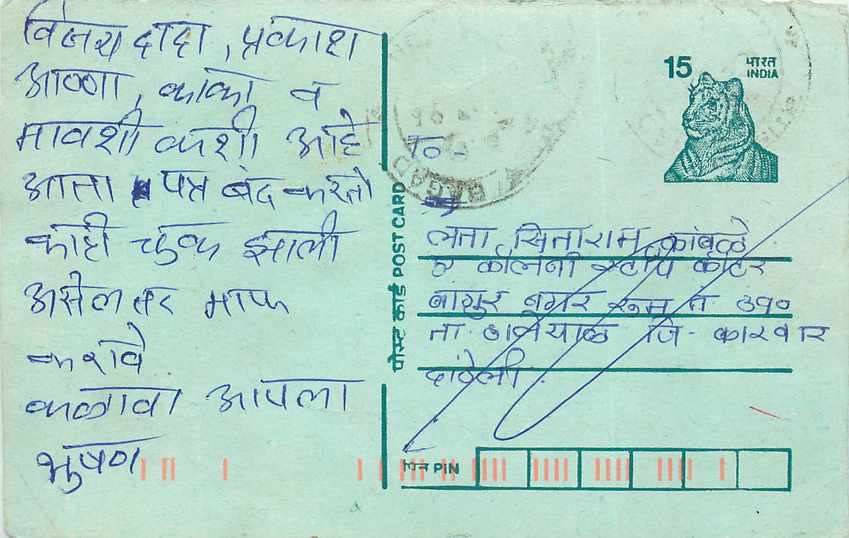 विजय दादा, प्रकाश
आण्णा, काका व
मावशी कशी आहे
आता पत्र बंद करतो
काही चुक झाली
असेल तर माफ
करावे
कळावा आपला
भुषण
पोस्ट कार्ड POST CARD
15 भारत
INDIA
To-
लता सिताराम कांबळे
ए कॉलनी स्टाफ कॉटर
बांगुर नगर रूम नं ३१०
ता. हालयाळ जि- कारवार
दांडेली.
पिन PIN